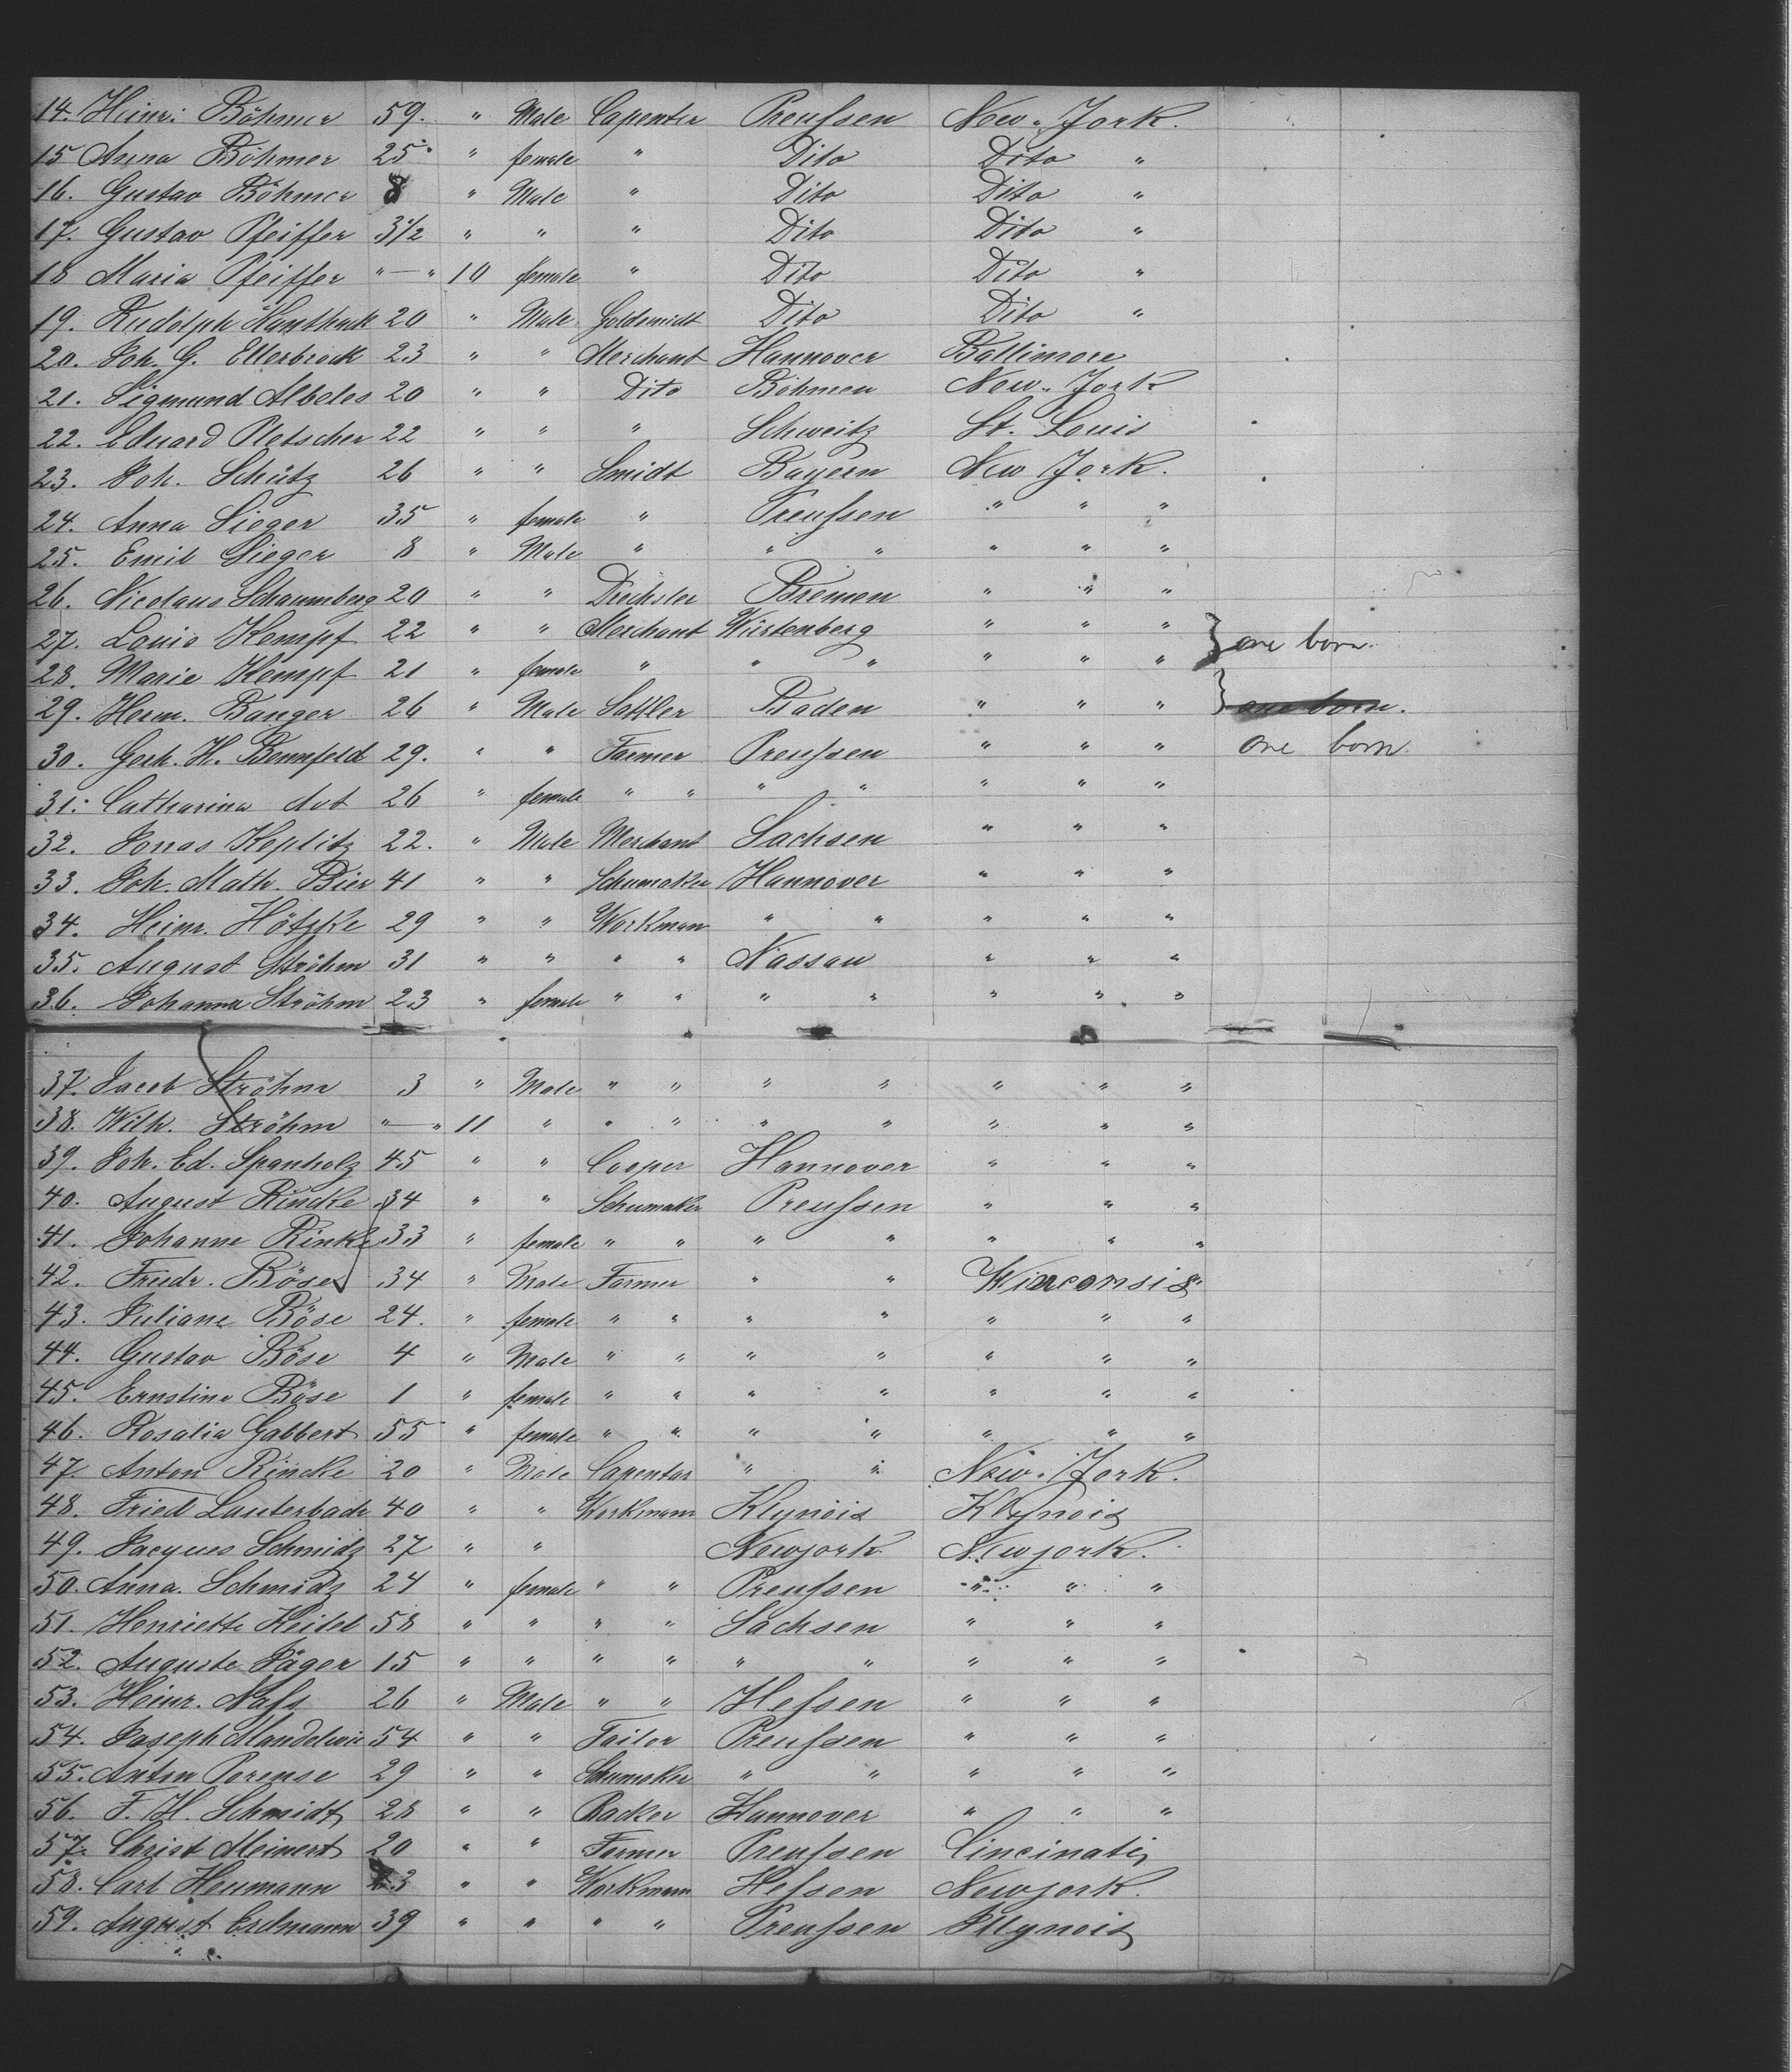 14. Heinr: Böhmer 59. " Male Capenter Preußen New-York.
15 Anna Böhmer 25 " female " Dito Dito "
16. Gustav Böhmer 8 " Male " Dito Dito "
17. Gustav Pfeiffer 3 1/2 " " " Dito Dito "
18 Maria Pfeiffer "—" 10 female " Dito Dito "
19. Rudolph 20 " Male Goldsmidt Dito Dito "
20. Joh. G. Ellerbrock 23 " " Merchant Hannover Baltimore
21. Sigmund Albeles 20 " " Dito Böhmen New-York
22. Eduard Pletscher 22 " " " Schweitz St. Louis
23. Joh. Schütz 26 " " Smidt Bayern New York.
24. Anna Sieger 35 " female " Preußen " " "
25. Emil Sieger 8 " Male " " " " " "
26. Nicolaus Schaumberg 20 " " Drechsler Bremen " " "
27. Louis Kempf 22 " " Merchant Würtenberg " " " } one born.
28. Marie Kempf 21 " female " " " " " "
29. Herm. Banger 26 " Male Sattler Baden " " " } one born.
30. Gerh. H. Bennfeld 29. " " Farmer Preußen " " " one born.
31. Catharina dot 26 " female " " " " " " "
32. Jonas Koplitz 22. " Male Merchant Sachsen " " "
33. Joh. Math. Bier 41 " " Schumaker Hannover " " "
34. Heinr. Hötzke 29 " " Workman " " " " "
35. August Ströhm 31 " " " " Nassau " " "
36. Johanna Ströhm 23 " female " " " " " " "
37. Jacob Ströhm 3 " Male " " " " " " "
38. Wilh. Ströhm "—" 11 " " " " " " " "
39. Joh. Ed. Spanholz 45 " " Cooper Hannover " " "
40. August Rincke 34 " " Schumaker Preußen " " "
41. Johanne Rinke 33 " female " " " " " " "
42. Friedr. Böse 34 " Male Farmer " " Winconsis
43. Juliane Böse 24. " female " " " " " " "
44. Gustav Böse 4 " Male " " " " " " "
45. Ernstine Böse 1 " female " " " " " " "
46. Rosalia Gabbert 55 " female " " " " " " "
47. Anton Rincke 20 " Male Capenter " " New-York.
48. Fried Lauterbach 40 " " Workmann Klynois Klynois
49. Jacques Schmidz 27 " " Newjork Newjork.
50. Anna Schmidz 24 " female " " Preußen " " "
51. Henriette Keitel 58 " " " " Sachsen " " "
52. Auguste Jäger 15 " " " " " " " " "
53. Heinr. Nass 26 " Male " " Hessen " " "
54. Joseph 54 " " Tailor Preußen " " "
55. Anton Porense 29 " " Schumaker " " " " "
56. F. H. Schmidt 28 " " Backer Hannover " " "
57. Christ Meinert 20 " " Farmer Preußen Cincinati,
58. Carl Heumann 23 " " Workmann Hessen Newjork.
59. August Erdmann 39 " " " " Preußen Illynois